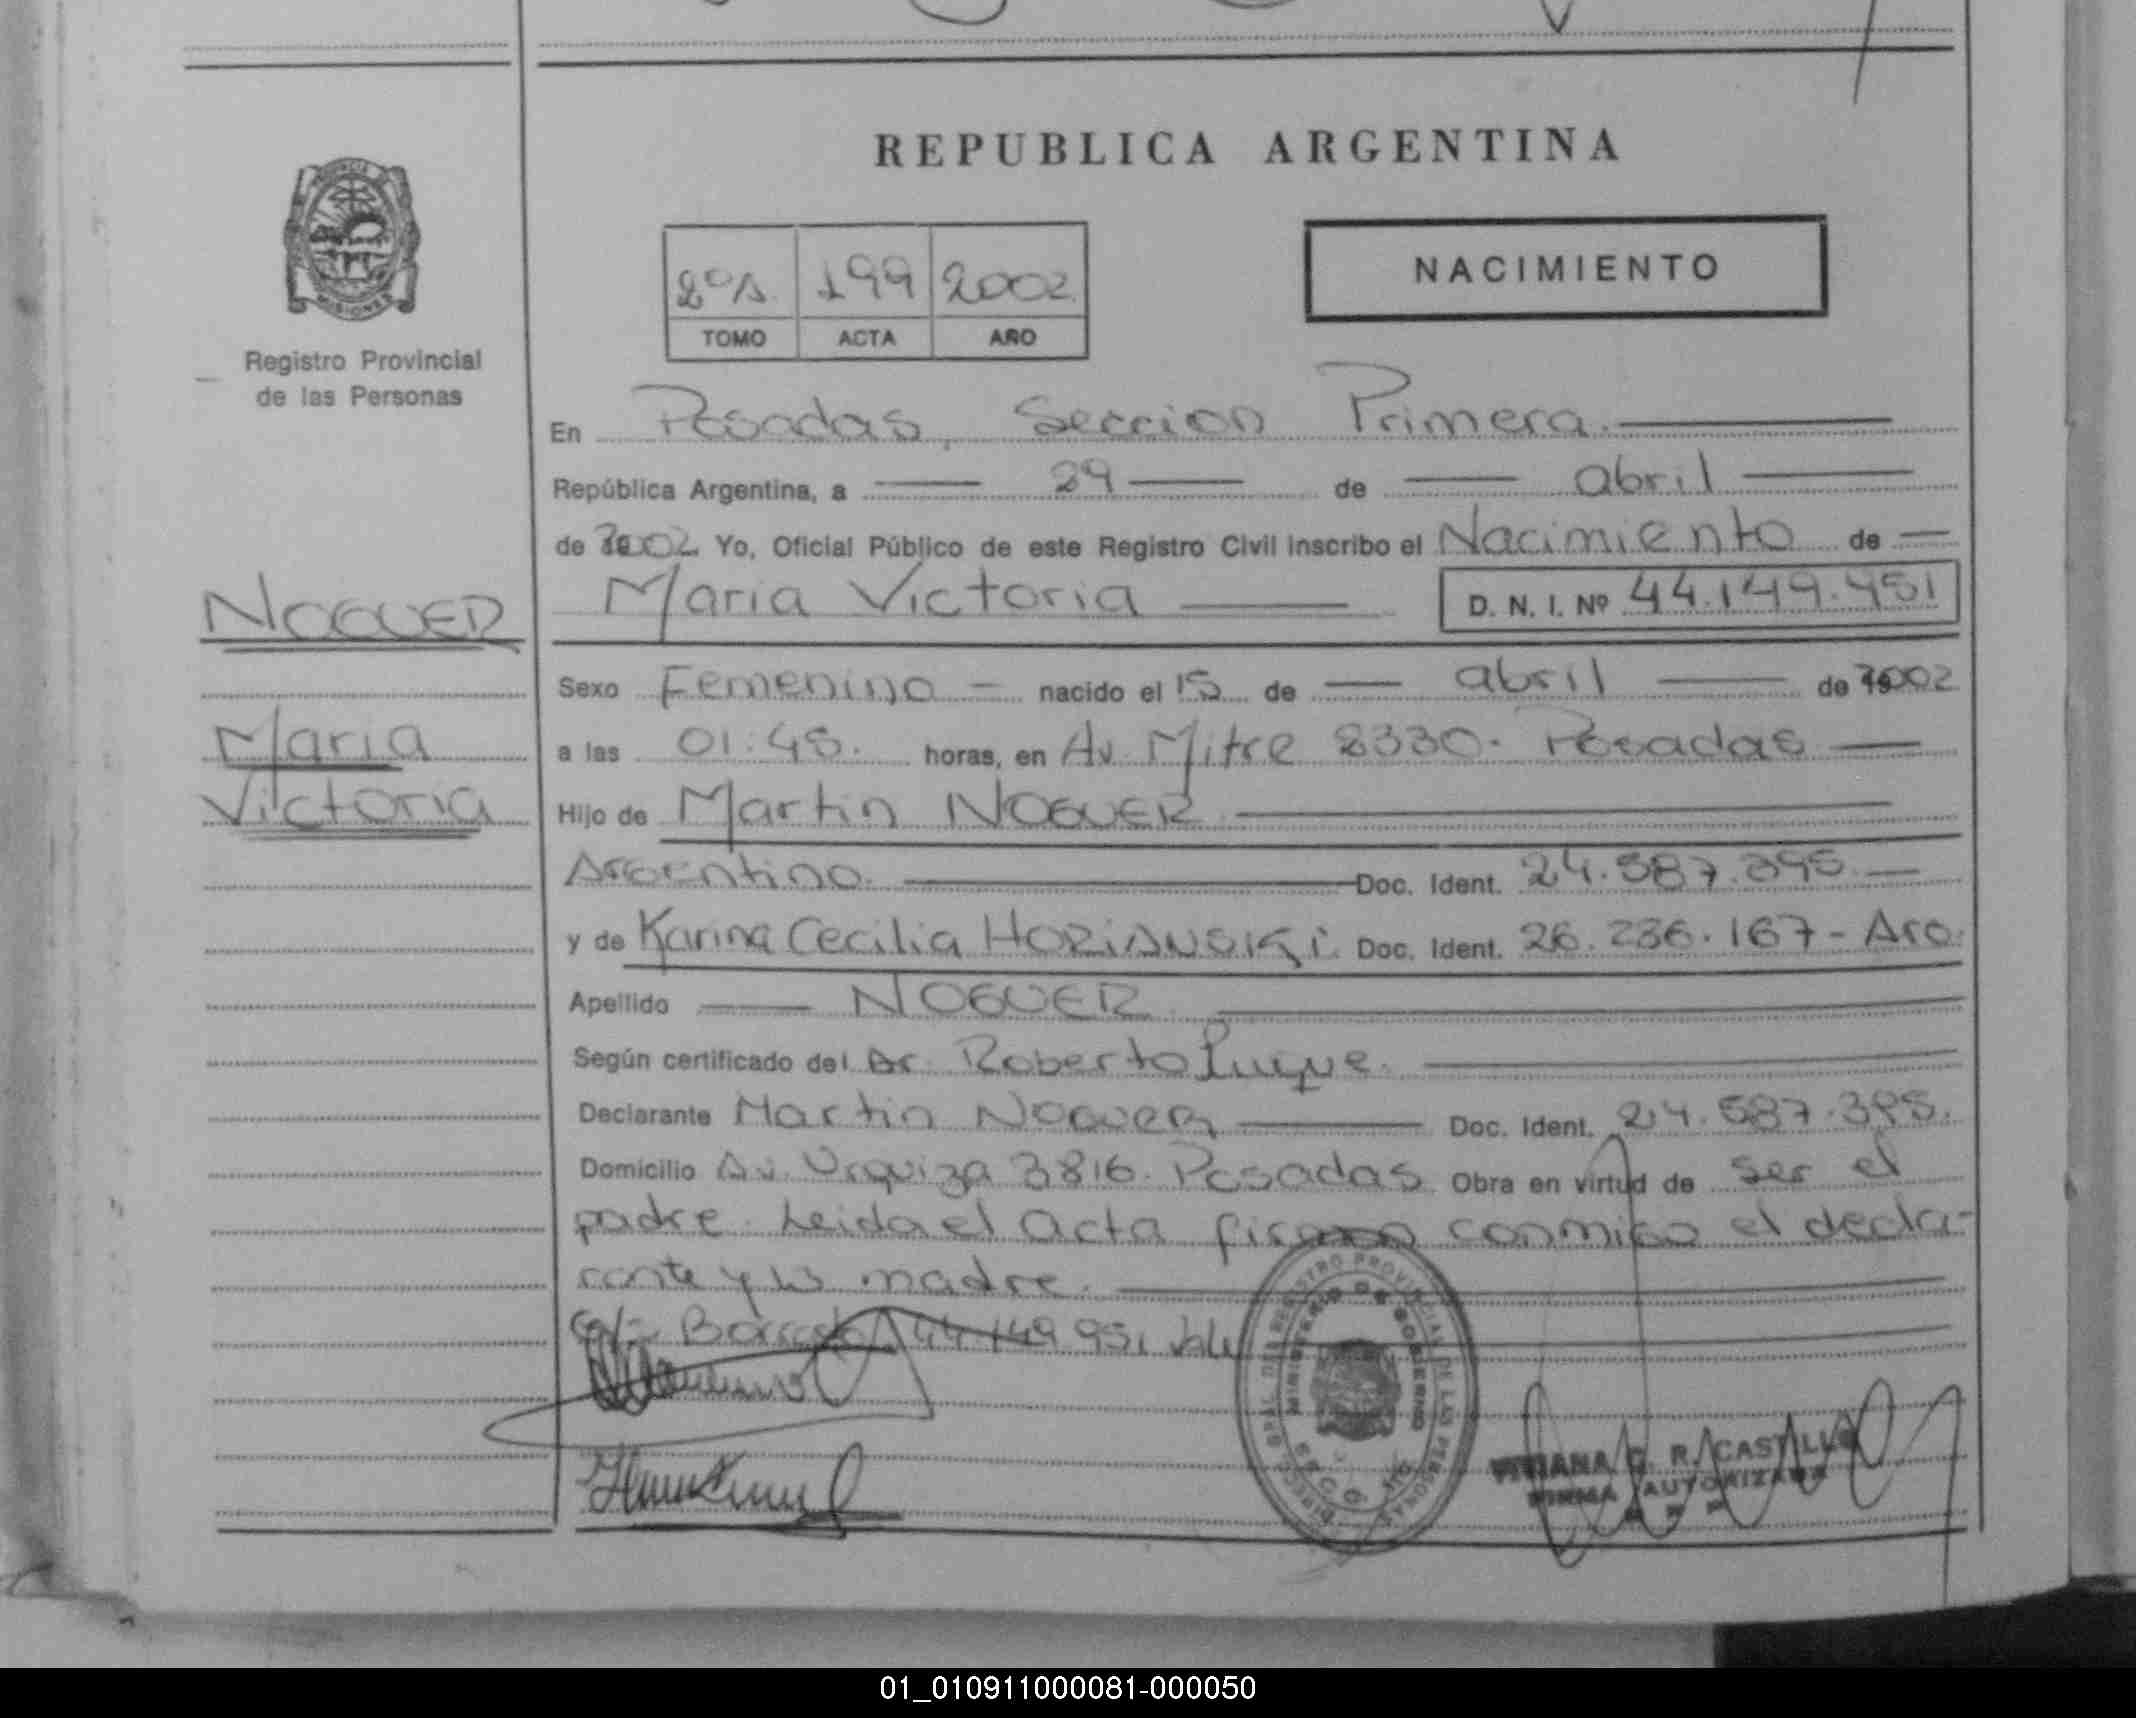 REPUBLICA ARGENTINA
PROVINCIA DE
MISIONES
Registro Provincial
de las Personas
2º A. 199 2002
TOMO ACTA AÑO
NACIMIENTO
En Posadas, Seccion Primera.
República Argentina, a 29 de abril
de 2002 Yo, Oficial Público de este Registro Civil inscribo el Nacimiento de
NOGUER
Maria Victoria D. N. I. Nº 44.149.951
Sexo Femenino - nacido el 15 de abril de 2002
Maria
a las 01:45. horas, en Av. Mitre 2330. Posadas
Victoria
Hijo de Martin NOGUER
Argentino. Doc. Ident. 24.587.395.
y de Karina Cecilia HORIANSKI. Doc. Ident. 26.236.167 - Arg.
Apellido NOGUER
Según certificado del Dr. Roberto Luque.
Declarante Martin NOGUER Doc. Ident. 24.587.395.
Domicilio Av. Urquiza 3816. Posadas Obra en virtud de ser el
padre. Leida el acta conmigo el decla-
rante y la madre.
Borrado 44.149.951 Vale
DIRECC. GRAL. DEL REGISTRO PROVINCIAL DE LAS PERSONAS
MINISTERIO DE GOBIERNO
VIVIANA G. R. CASTILLO
FIRMA AUTORIZADA
01_010911000081-000050